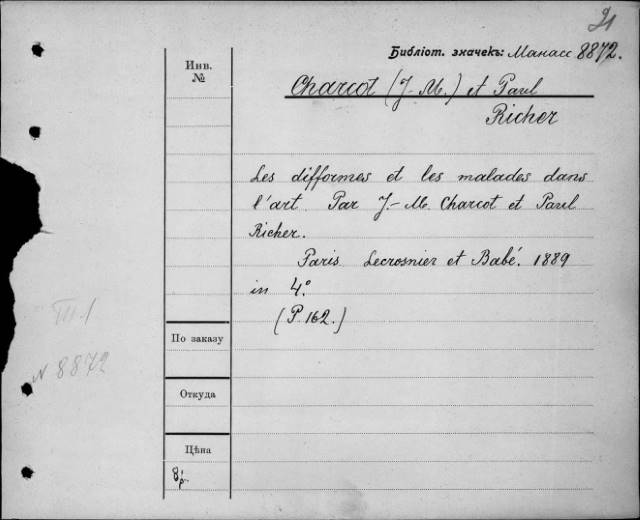 21
Библіот. значекъ: Манасс 8872.
Инв.
№
Charcot (J. M.) et Paul
Richer
Les difformes et les malades dans
l'art Par J.-M. Charcot et Paul
Richer.
Paris Lecrosnier et Babé. 1889
in 4°.
(P. 162.)
III.1
N 8872
По заказу
Откуда
Цѣна
8р.